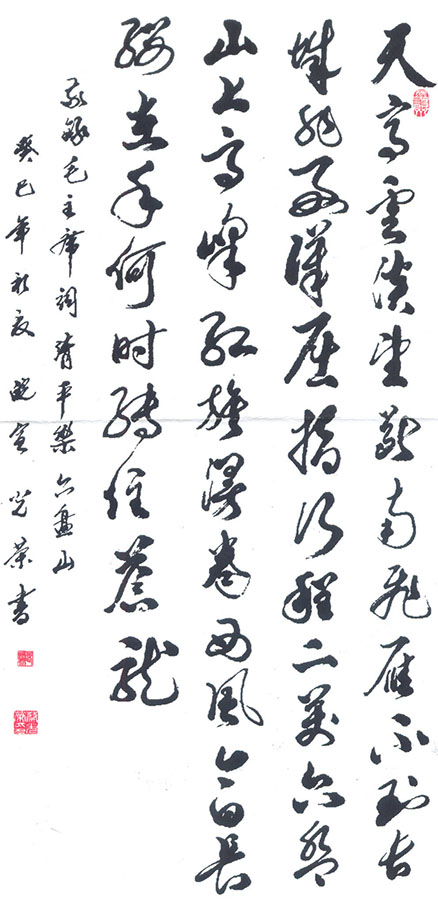 天高雲淡望斷南飛雁不到长
城非好漢屈指行程二萬六盤
山上高峰红旗漫卷西風今日長
缨在手何时缚住蒼龍
敬錄毛主席詞清平樂六盘山
癸巳年初夏 光荣書